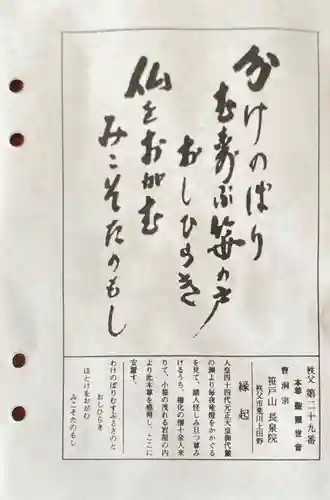 分けのぼり
むすぶ笹の戸
おしひらき
仏をおがむ
みこそたのもし
秩父 第二十九番
本尊 聖観世音
曹洞宗
笹戸山 長泉院
秩父市荒川上田野
縁起
人皇四十四代元正天皇御代麓
の淵より毎夜竜燈をかかぐる
を見て、諸人怪しみ且つ尊み
けるうち、権化の僧十余人来
りて、小笹の茂れる岩屋の内
より此本尊を感得し、ここに
安置す。
わけのぼりむすぶささのと
おしひらき
ほとけをおがむ
みこそたのもし